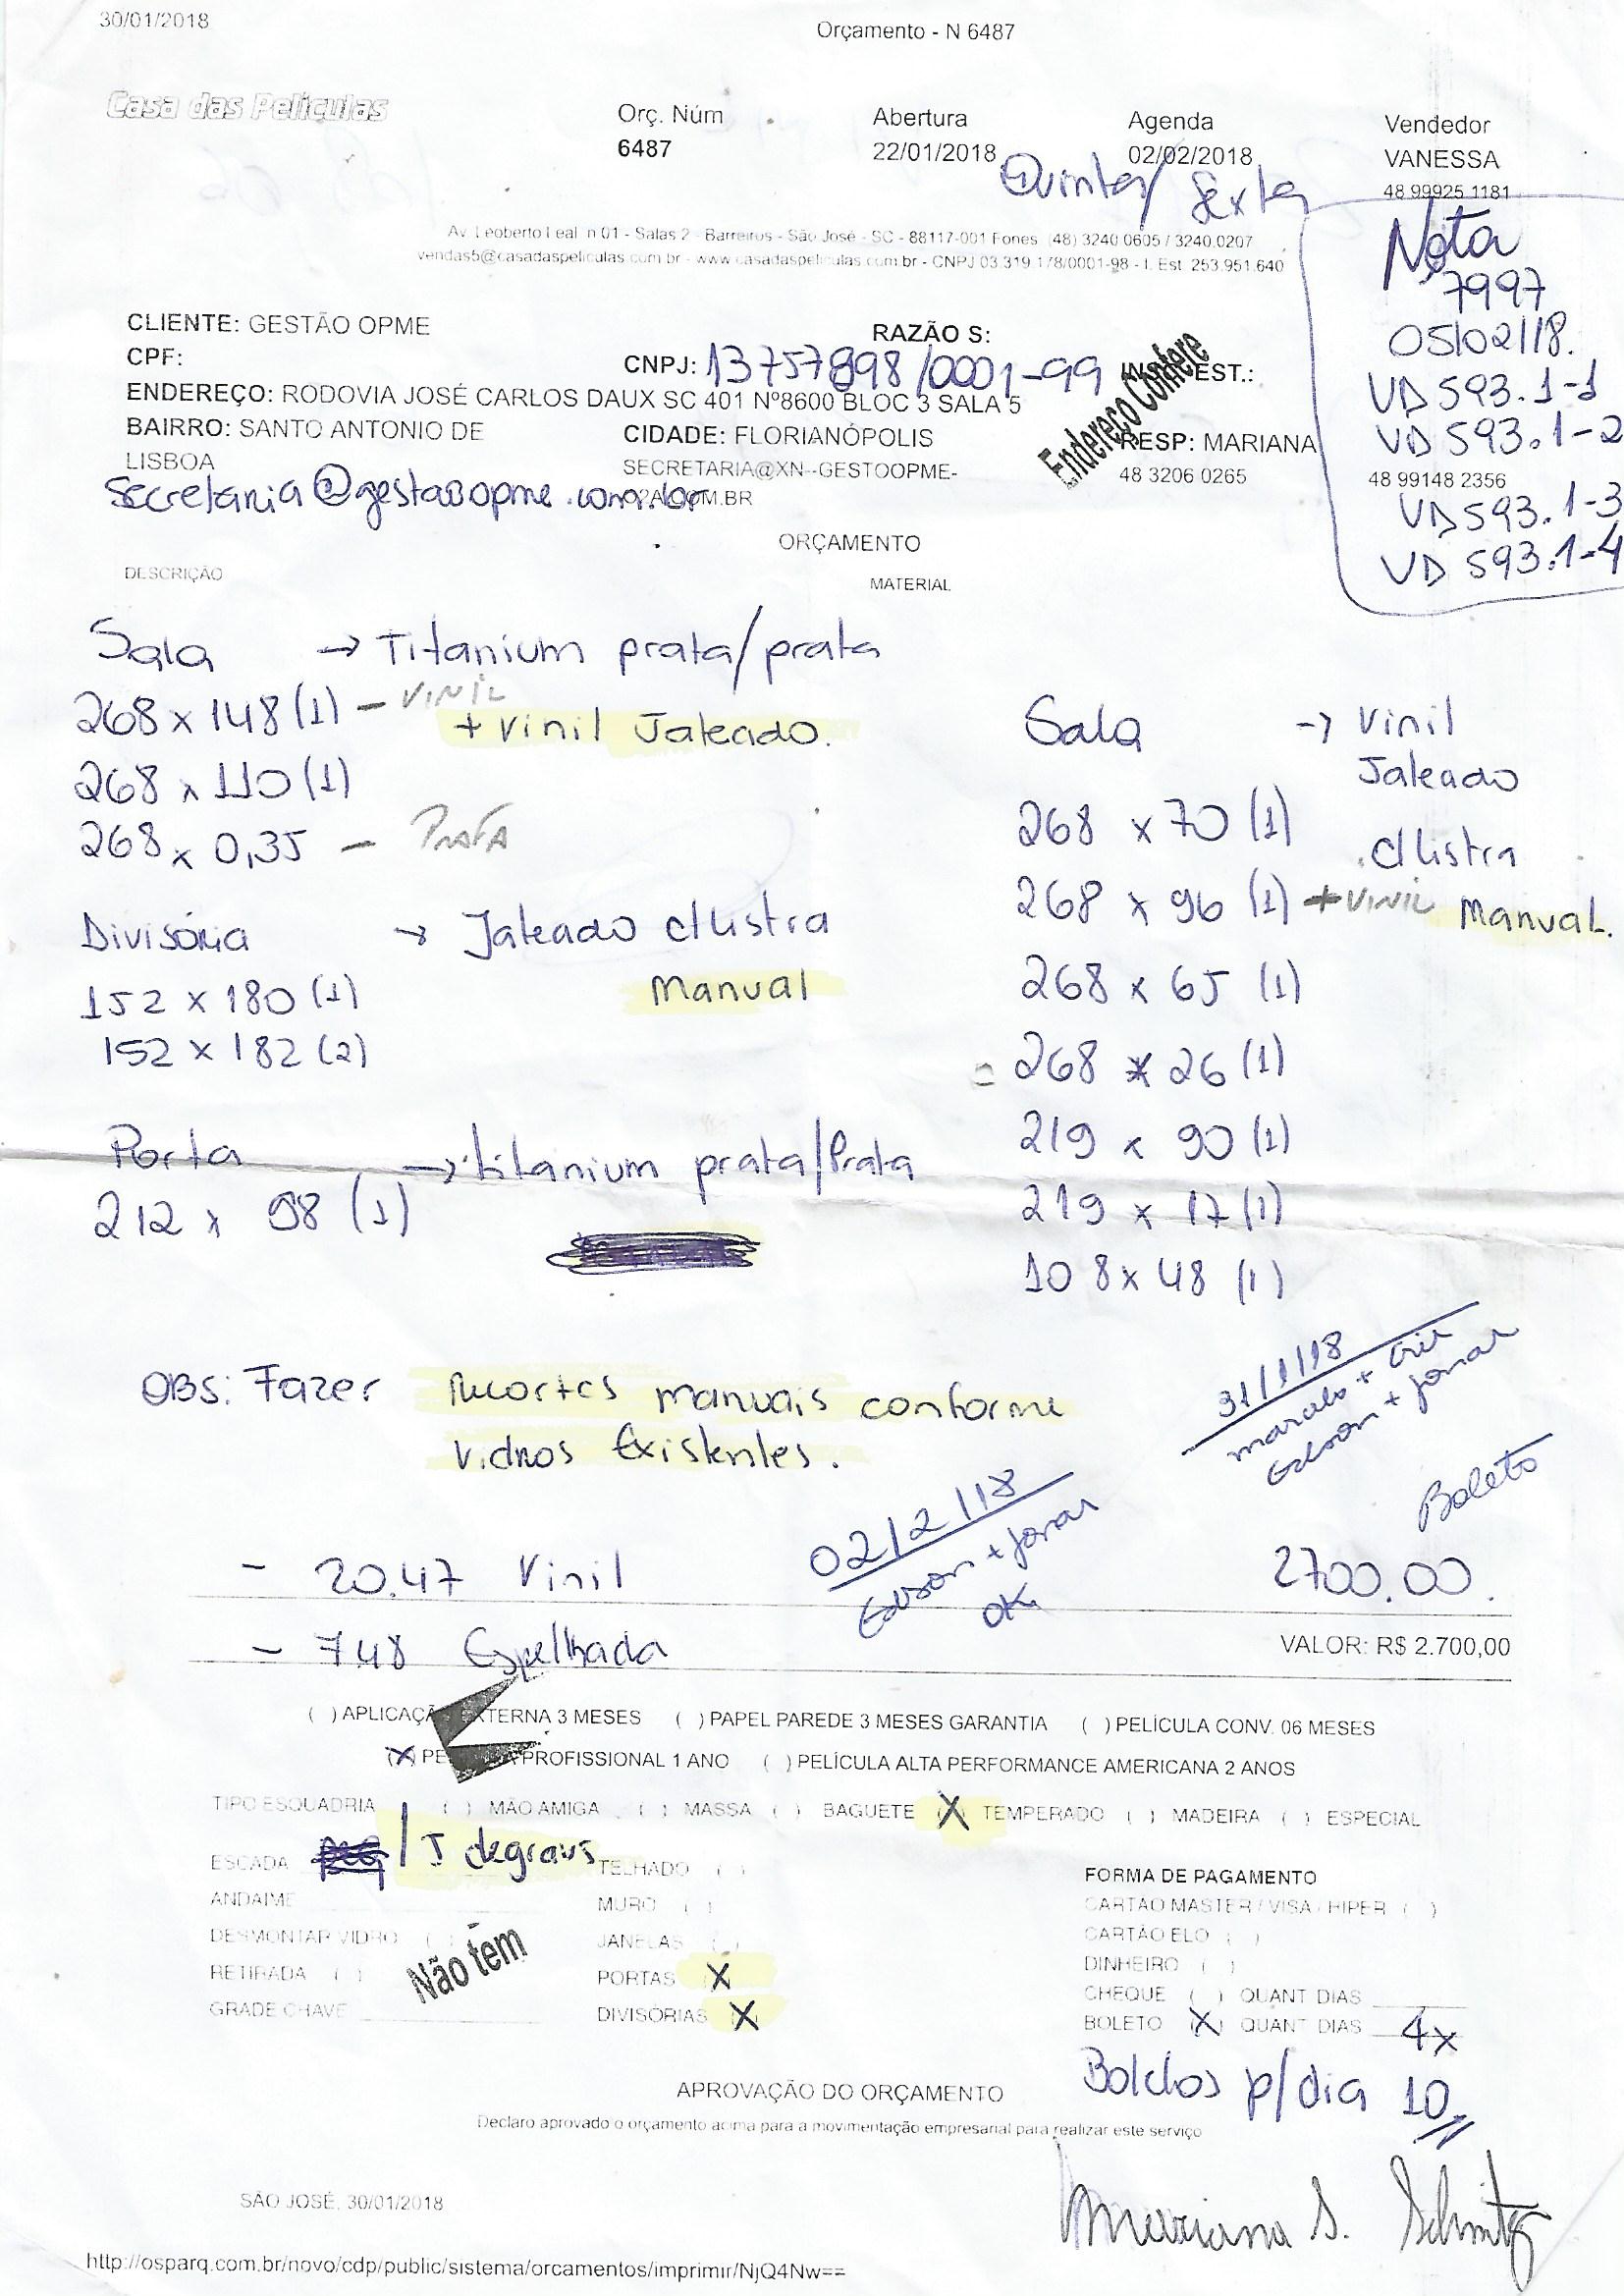 30/01/2018
Orçamento - N 6487
Casa das Películas
Orç. Núm
6487
Abertura
22/01/2018
Agenda
02/02/2018
Quinta/ Sexta
Vendedor
VANESSA
48 99925 1181
Av. Leoberto Leal, n 01 - Salas 2 - Barreiros - São José - SC - 88117-001 Fones (48) 3240.0605 / 3240.0207
vendas5@casadaspeliculas.com.br - www.casadaspeliculas.com.br - CNPJ 03.319.178/0001-98 - I. Est. 253.951.640
Nota
7997
05/02/18.
VD 593.1-1
VD 593.1-2
VD 593.1-3
VD 593.1-4
CLIENTE: GESTÃO OPME
RAZÃO S:
CPF:
CNPJ: 13757898/0001-99
EST.:
Endereço Confere
ENDEREÇO: RODOVIA JOSÉ CARLOS DAUX SC 401 Nº8600 BLOC 3 SALA 5
BAIRRO: SANTO ANTONIO DE LISBOA
CIDADE: FLORIANÓPOLIS
RESP: MARIANA
SECRETARIA@XN--GESTOOPME-
.COM.BR
48 3206 0265
48 99148 2356
secretaria@gestaoopme.com.br
ORÇAMENTO
DESCRIÇÃO
MATERIAL
Sala → Titanium prata/prata
268 x 148 (1) - VINIL
+ Vinil Jateado.
268 x 110 (1)
268 x 0,35 - PRATA
Divisória → Jateado c/listra
Manual
152 x 180 (1)
152 x 182 (2)
Porta → titanium prata/Prata
212 x 98 (1)
Sala → Vinil
Jateado
c/listra
Manual.
268 x 70 (1)
268 x 96 (1) + VINIL
268 x 65 (1)
268 x 26 (1)
219 x 90 (1)
219 x 17 (1)
108 x 48 (1)
OBS: Fazer Recortes manuais conforme
vidros Existentes.
31/1/18
marcelo + Cris
Edson + Jonas
02/2/18
Edson + Jonas
OK
Boleto
- 20.47 Vinil
2700.00
- 7.48 Espelhada
VALOR: R$ 2.700,00
( ) APLICAÇÃO EXTERNA 3 MESES ( ) PAPEL PAREDE 3 MESES GARANTIA ( ) PELÍCULA CONV. 06 MESES
(X) PELÍCULA PROFISSIONAL 1 ANO ( ) PELÍCULA ALTA PERFORMANCE AMERICANA 2 ANOS
TIPO ESQUADRIA ( ) MÃO AMIGA ( ) MASSA ( ) BAGUETE (X) TEMPERADO ( ) MADEIRA ( ) ESPECIAL
ESCADA / 5 degraus
ANDAIME
DESMONTAR VIDRO ( )
RETIRADA ( )
GRADE CHAVE
Não tem
TELHADO ( )
MURO ( )
JANELAS ( )
PORTAS (X)
DIVISÓRIAS (X)
FORMA DE PAGAMENTO
CARTÃO MASTER / VISA / HIPER ( )
CARTÃO ELO ( )
DINHEIRO ( )
CHEQUE ( ) QUANT DIAS
BOLETO (X) QUANT DIAS 4x
Boletos p/ dia 10
APROVAÇÃO DO ORÇAMENTO
Declaro aprovado o orçamento acima para a movimentação empresarial para realizar este serviço
Mariana S. Schmitz
SÃO JOSÉ, 30/01/2018
http://osparq.com.br/novo/cdp/public/sistema/orcamentos/imprimir/NjQ4Nw==